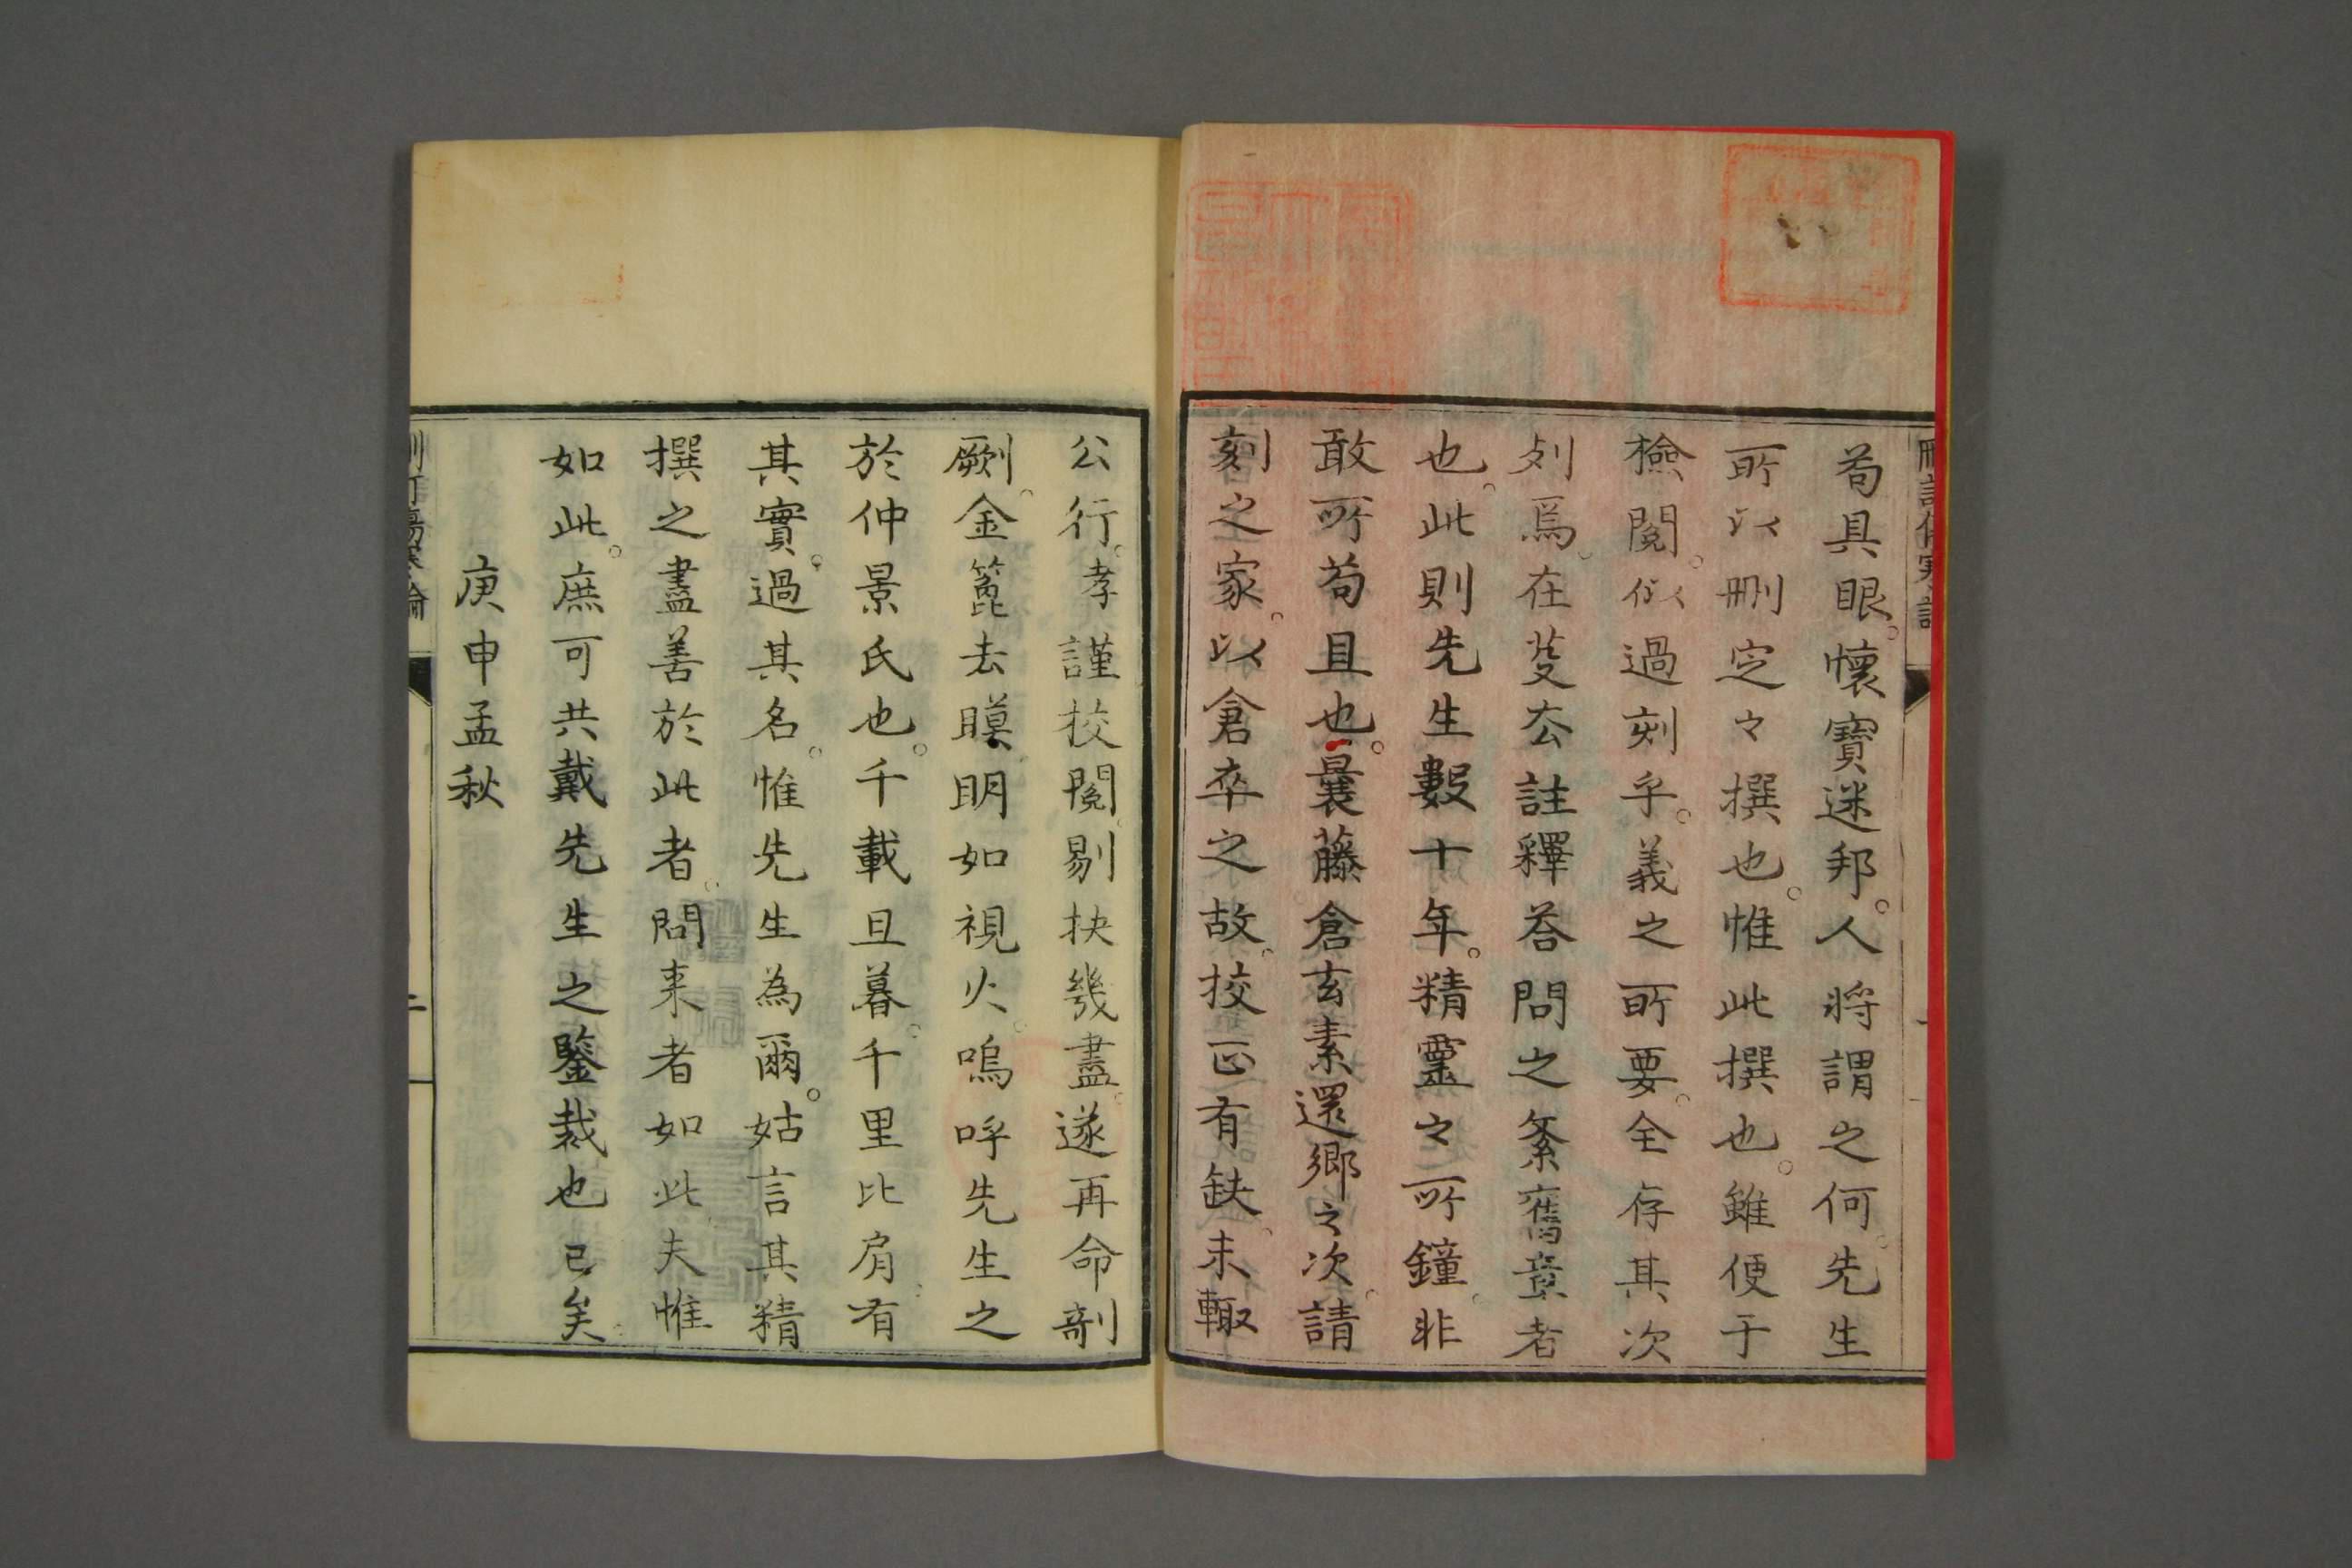 苟具眼。懷寶迷邦。人將謂之何。先生
所以刪定之撰也。惟此撰也。雖便于
檢閱。似過刻乎。義之所要。全存其次
列焉。在芟厺註釋荅問之紊舊章者
也。此則先生數十年。精靈之所鐘。非
敢所苟且也。曩藤倉玄素還鄉之次。請
刻之家。以倉卒之故。挍正有缺。未輙
公行。孝謹挍閱。剔抉幾盡。遂再命剞
劂。金篦去瞙。明如視火。嗚呼先生之
於仲景氏也。千載旦暮。千里比肩。有
其實。過其名。惟先生為爾。姑言其精
撰之盡善於此者。問来者如此夫惟
如此。庶可共戴先生之鑒裁也已矣。
庚申孟秋
刪訂傷寒論
二